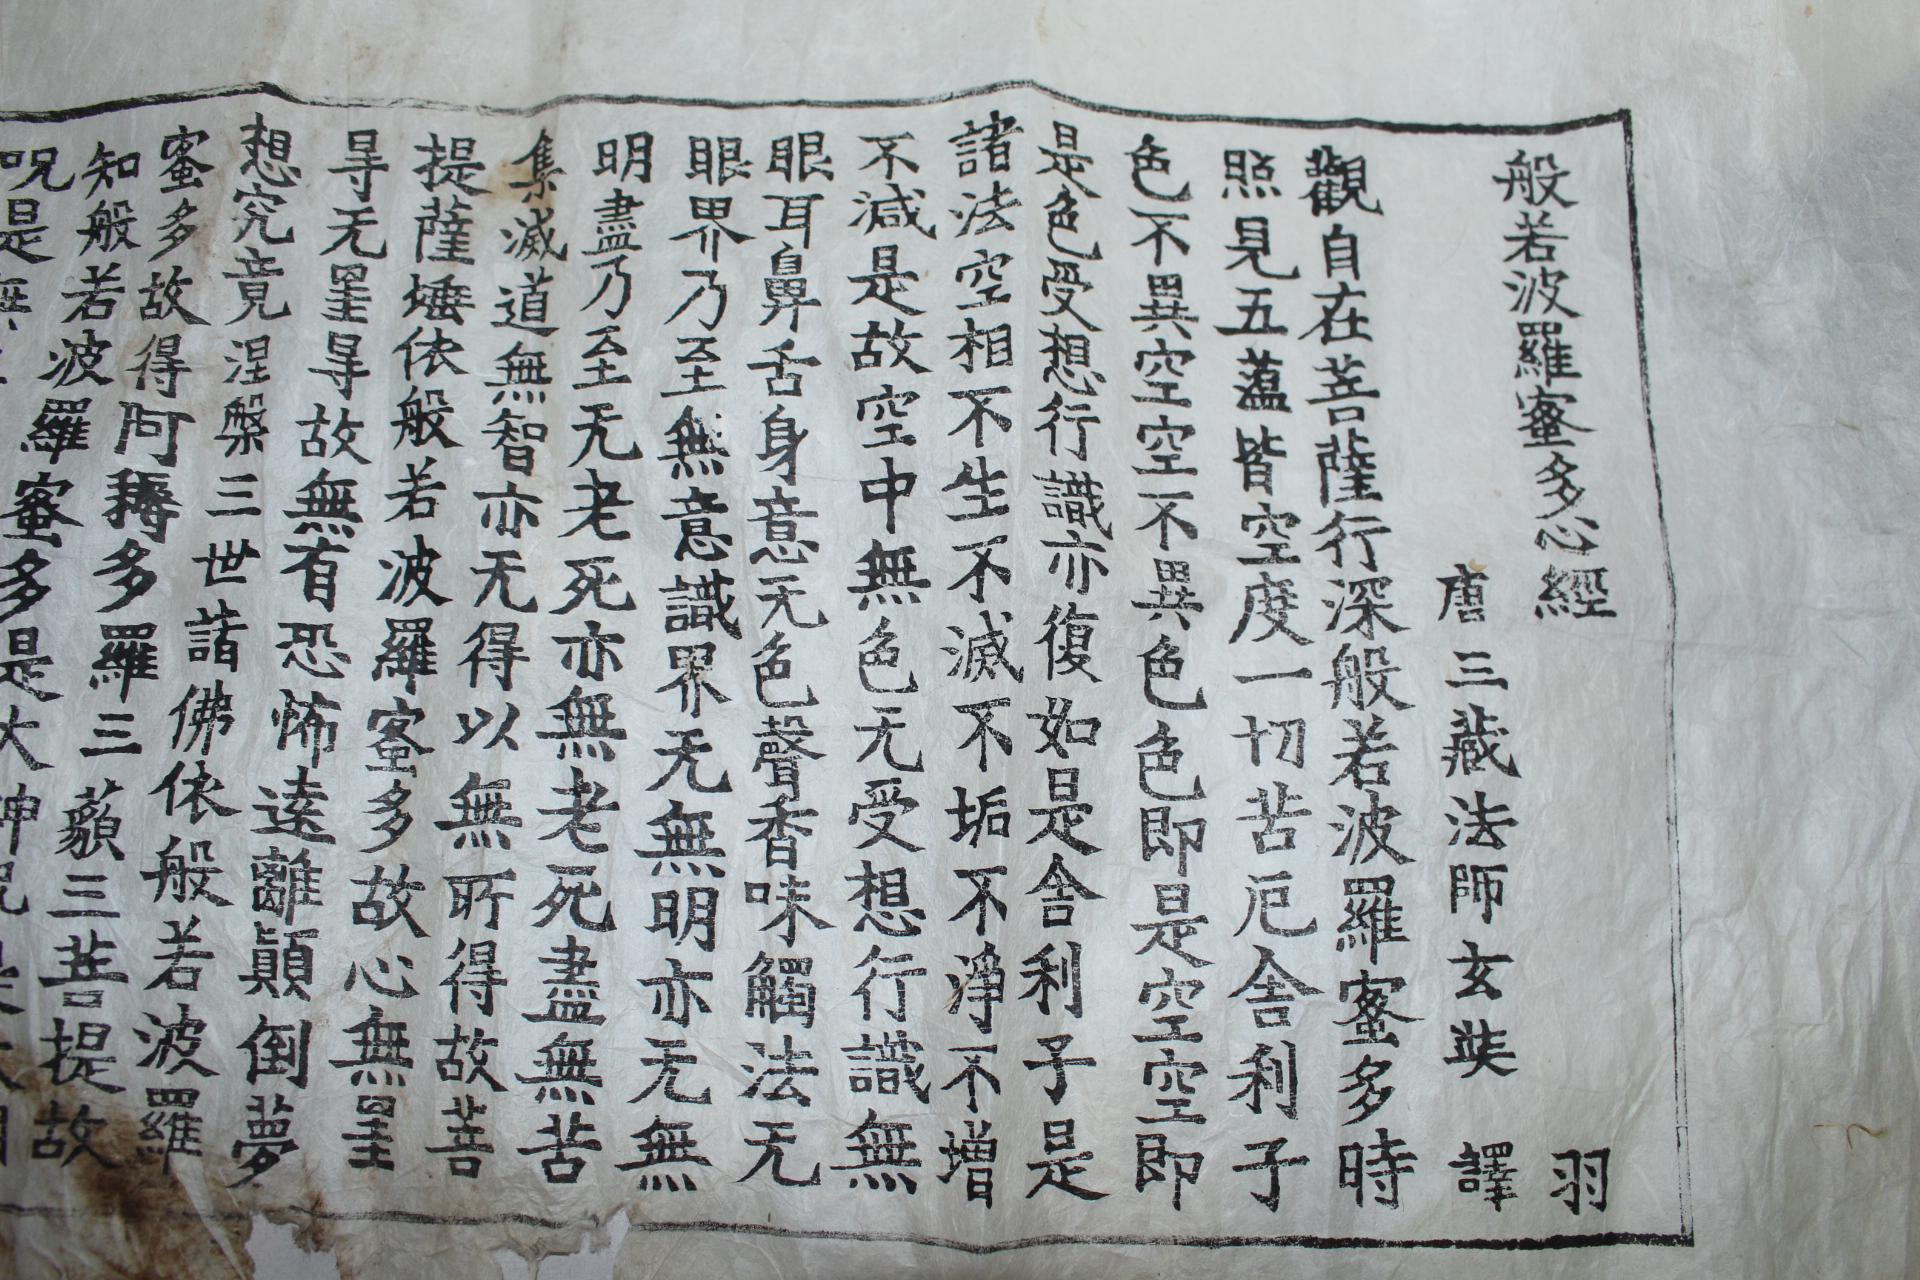 般若波羅蜜多心經 羽
唐三藏法師玄奘 譯
觀自在菩薩行深般若波羅蜜多時
照見五蘊皆空度一切苦厄舍利子
色不異空空不異色色即是空空即
是色受想行識亦復如是舍利子是
諸法空相不生不滅不垢不淨不增
不減是故空中無色无受想行識無
眼耳鼻舌身意无色聲香味觸法无
眼界乃至無意識界无無明亦无無
明盡乃至无老死亦無老死盡無苦
集滅道無智亦无得以無所得故菩
提薩埵依般若波羅蜜多故心無罣
㝵无罣㝵故無有恐怖遠離顛倒夢
想究竟涅槃三世諸佛依般若波羅
蜜多故得阿耨多羅三藐三菩提故
知般若波羅蜜多是大神呪是大明
呪是無